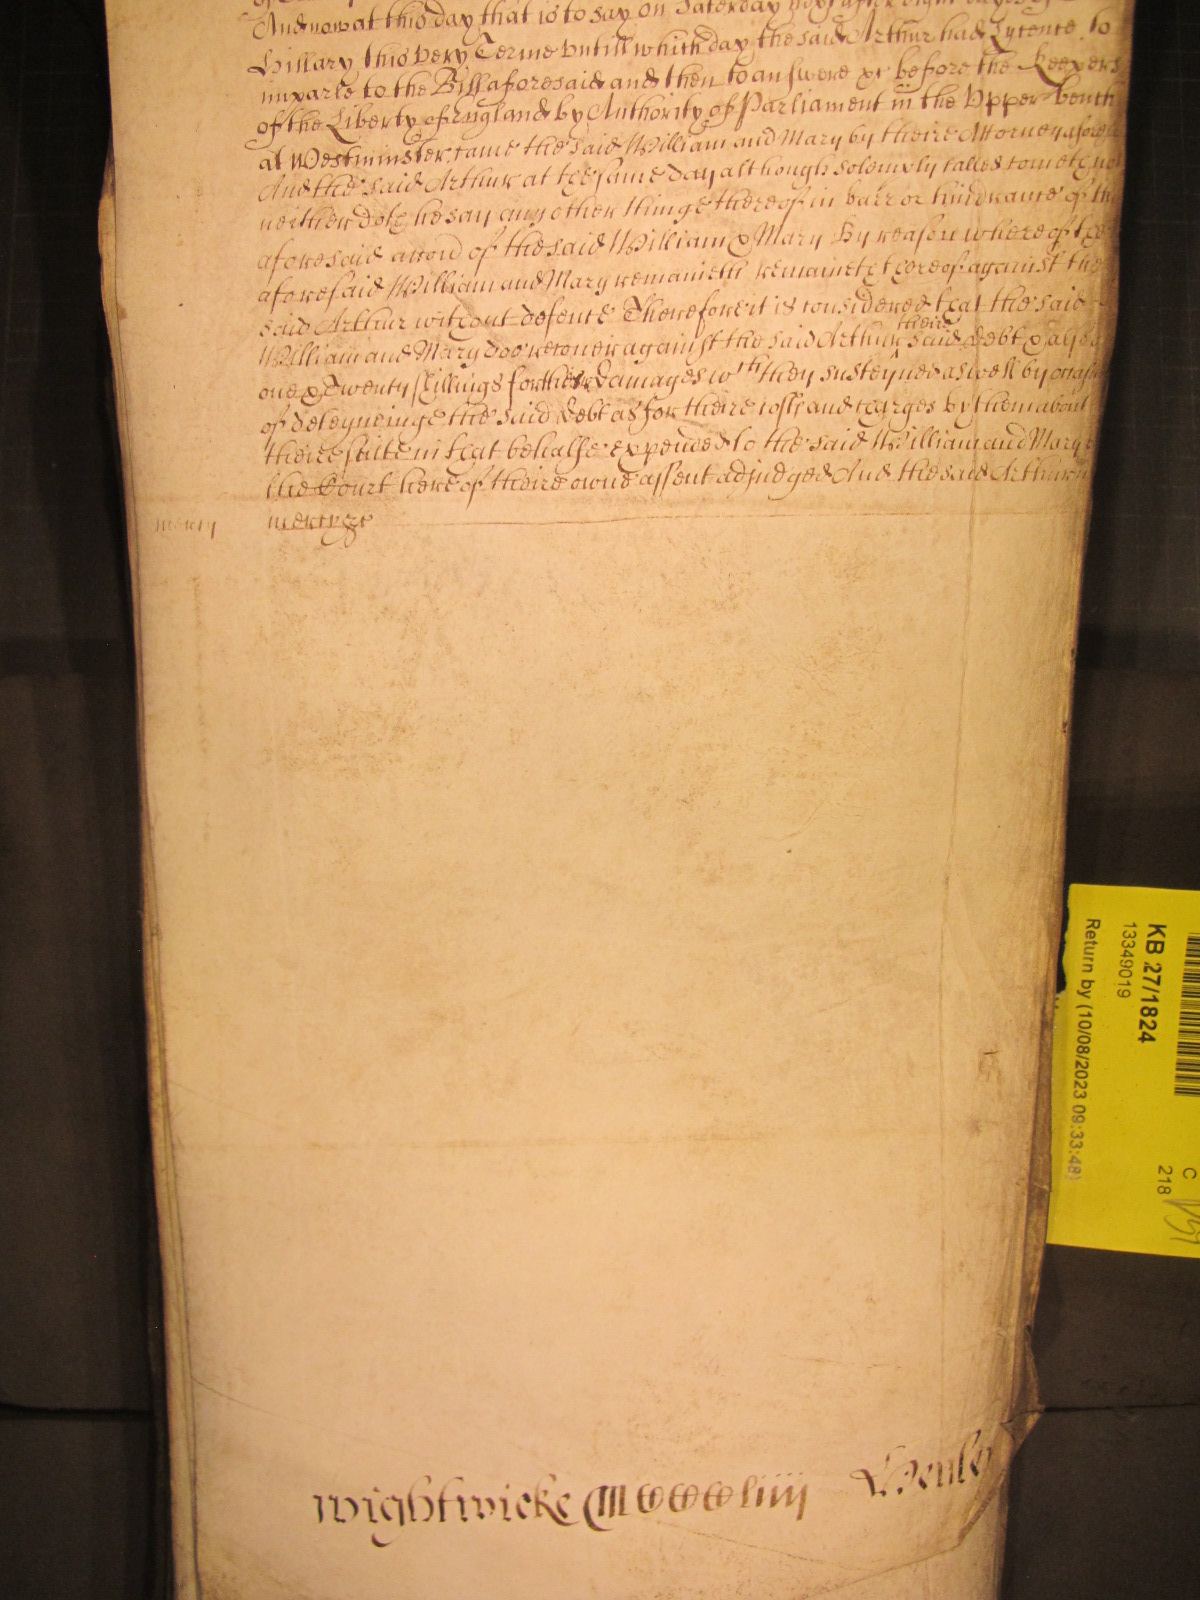 And now at this day that is to say on Saturday next after eight dayes of
Hillary this very Terme untill which day the said Arthur had Lycence to
imparle to the Bill aforesaid and then to answere &c before the Keepers
of the Liberty of England by Authority of Parliament in the Upper bench
at Westminster came the said William and Mary by theire Attorney afores
And the said Arthur at the same day although solemply called cometh not
neither doth he say any other thinge thereof in barr or hindrance of the
aforesaid accon of the said William & Mary By reason whereof the
aforesaid William and Mary remanieth remaineth thereof against the
said Arthur without defence Therefore it is considered that the said
William and Mary doe recover against the said Arthur theire said debt & alsoe
one & Twenty shillings for their damages wch they susteyned aswell by occasion
of deteyneinge the said debt as for theire costs and charges by them about
theire suite in that behalfe expended to the said William and Mary
the Court here of theire owne assent adjudged And the said Arthur in
mercy
mercy &c
KB 27/1824
13349019
Return by (10/08/2023 09:33:48)
C
218
Wightwicke
Henley